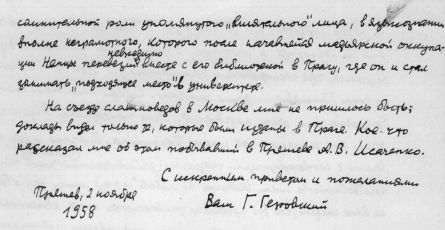 сомнительной роли упомянутого "влиятельного" лица, в языкознании
вполне неграмотного, которого после начавшейся мадьярской оккупа-
невредимо
ции перевезли вместе с его библиотекой в Прагу, где он и стал
занимать "подходящее место" в университете.
На съезде славистов в Москве мне не пришлось быть;
доклады видел только те, которые были изданы в Праге. Кое-что
рассказал мне об этом побывавший в Пряшеве А. В. Исаченко.
С искренним приветом и пожеланиями
Пряшев, 2 ноября
Ваш Г. Геровский
1958